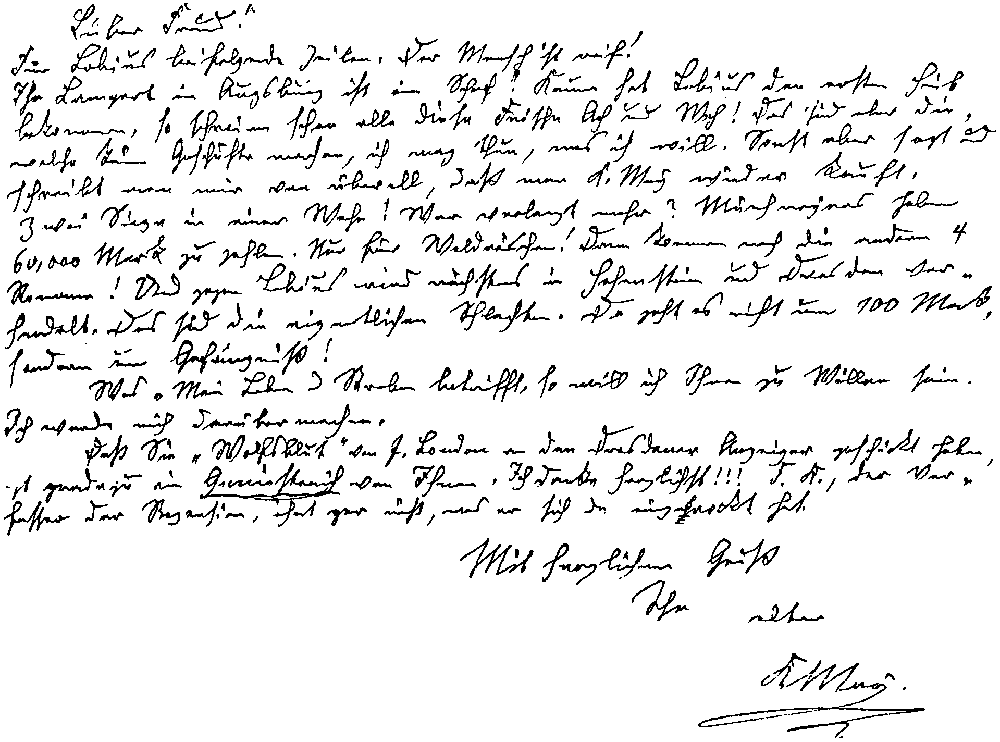 Lieber Freund!
Für Lebius beifolgende Zeilen. Der Mensch ist reif!
Ihr Lampert in Augsburg ist ein Schaf! Kaum hat Lebius den ersten Hieb
bekommen, so schreien schon alle diese Frösche Ach und Weh! Das sind aber die,
welche kein Geschäft machen, ich mag thun, was ich will. Sonst aber sagt und
schreibt man mir von überall, daß man K. May wieder kauft.
Zwei Siege in einer Woche! Wer verlangt mehr? Münchmeyers haben
60,000 Mark zu zahlen. Nur für Waldröschen! Dann kommen noch die andern 4
Romane! Und gegen Lebius wird nächstens in Hohenstein und Dresden ver-
handelt. Das sind die eigentlichen Schlachten. Da geht es nicht um 100 Mark,
sondern um Gefängniß!
Was „Mein Leben u Streben betrifft, so will ich Ihnen zu Willen sein.
Ich werde mich darübermachen.
Daß Sie „Wolfsblut" von J. London an den Dresdener Anzeiger geschickt haben,
ist geradezu ein Geniestreich von Ihnen. Ich danke herzlichst!!! F. K., der Ver-
fasser der Rezension, ahnt gar nicht, was er sich da eingebrockt hat.
Mit herzlichem Gruß
Ihr alter
K May.